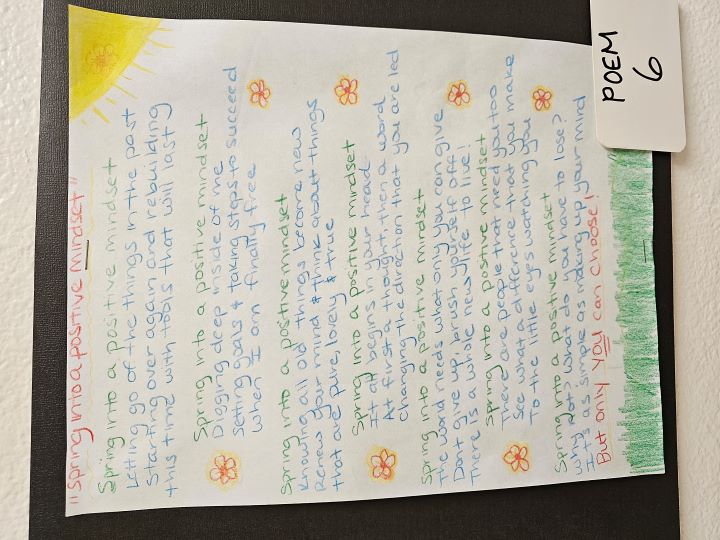 "Spring into a positive mindset"
Spring into a positive mindset
Letting go of the things in the past
Starting over again and rebuilding
this time with tools that will last
Spring into a positive mindset
Digging deep inside of me
Setting goals & taking steps to succeed
When I am finally free
Spring into a positive mindset
Knowing all old things become new
Renew your mind & think about things
that are pure, lovely & true
Spring into a positive mindset
It all begins in your head
At first a thought, then a word
changing the direction that you are led
Spring into a positive mindset
The world needs what only you can give
Dont give up, brush yourself off
There is a whole new life to live!
Spring into a positive mindset
There are people that need you too
See what a difference that you make
To the little eyes watching you
Spring into a positive mindset
Why Not? What do you have to lose?
It's as simple as making up your mind
But only YOU can choose!
POEM
6